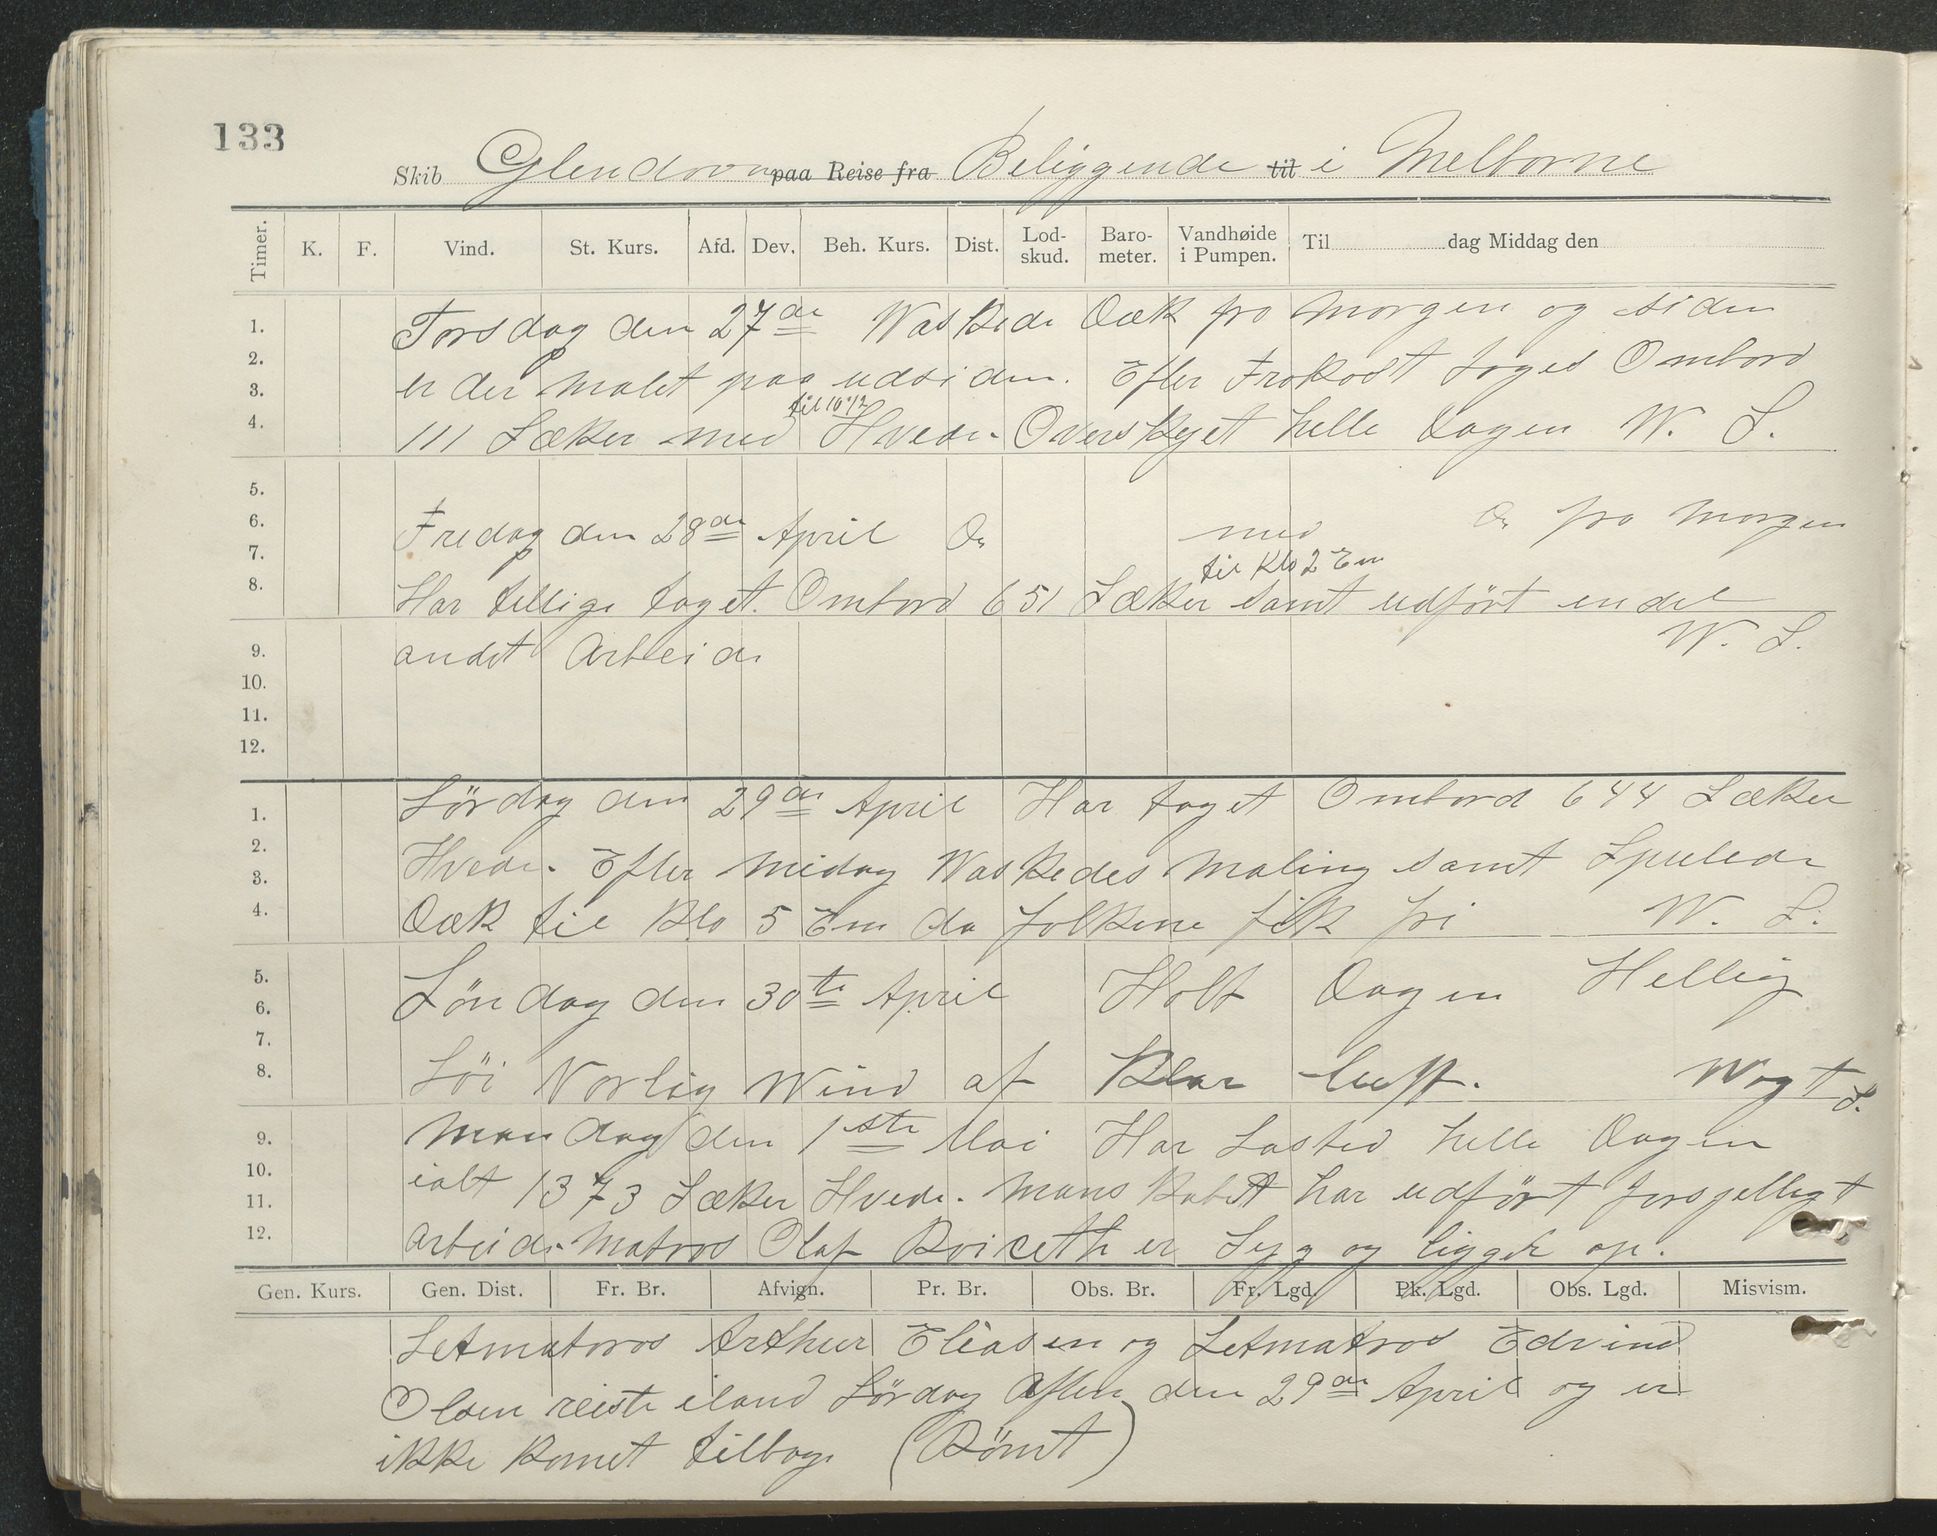 133
Skib Glendoon paa Reise fra Beliggende til i Melborne
Timer. K. F. Vind. St. Kurs. Afd. Dev. Beh. Kurs. Dist. Lod-skud. Baro-meter. Vandhøide i Pumpen. Til dag Middag den
1. Torsdag den 27de Waskede Dæk fra Morgen og siden
2.
3. er der malet paa udsiden. Efter Frokost toges Ombord
til 10 1/2
4. 111 Sæker med Hvede. Overskyet helle Dagen W. S.
5.
6. Fredag den 28de April Do med Do fra Morgen
7. til Klo 2 Em
8. Har tillige taget Ombord 651 Sæker samt udført endel
9. andet Arbeide W. S.
10.
11.
12.
1. Lørdag den 29de April Har taget Ombord 644 Sæker
2.
3. Hvede. Efter Midag Waskedes Maling samt Spulede
4. Dæk til Klo 5 Em da folkene fik fri W. S.
5.
6. Søndag den 30te April Holt Dagen Hellig
7.
8. Løi Norlig Wind af Klar luft. Wagt S.
9. Mandag den 1ste Mai Har Lasted helle Dagen
10.
11. ialt 1373 Sæker Hvede. Manskabet har udført forsjelligt
12. Arbeide. Matros Olaf er Syg og ligger op.
Gen. Kurs. Gen. Dist. Fr. Br. Afvign. Pr. Br. Obs. Br. Fr. Lgd. Pk. Lgd. Obs. Lgd. Misvism.
Letmatoros Arthur Eliasen og Letmatros Edvind
Olsen reiste iland Lørdag Aften den 29de April og er
ikke komet tilbage (Rømt)